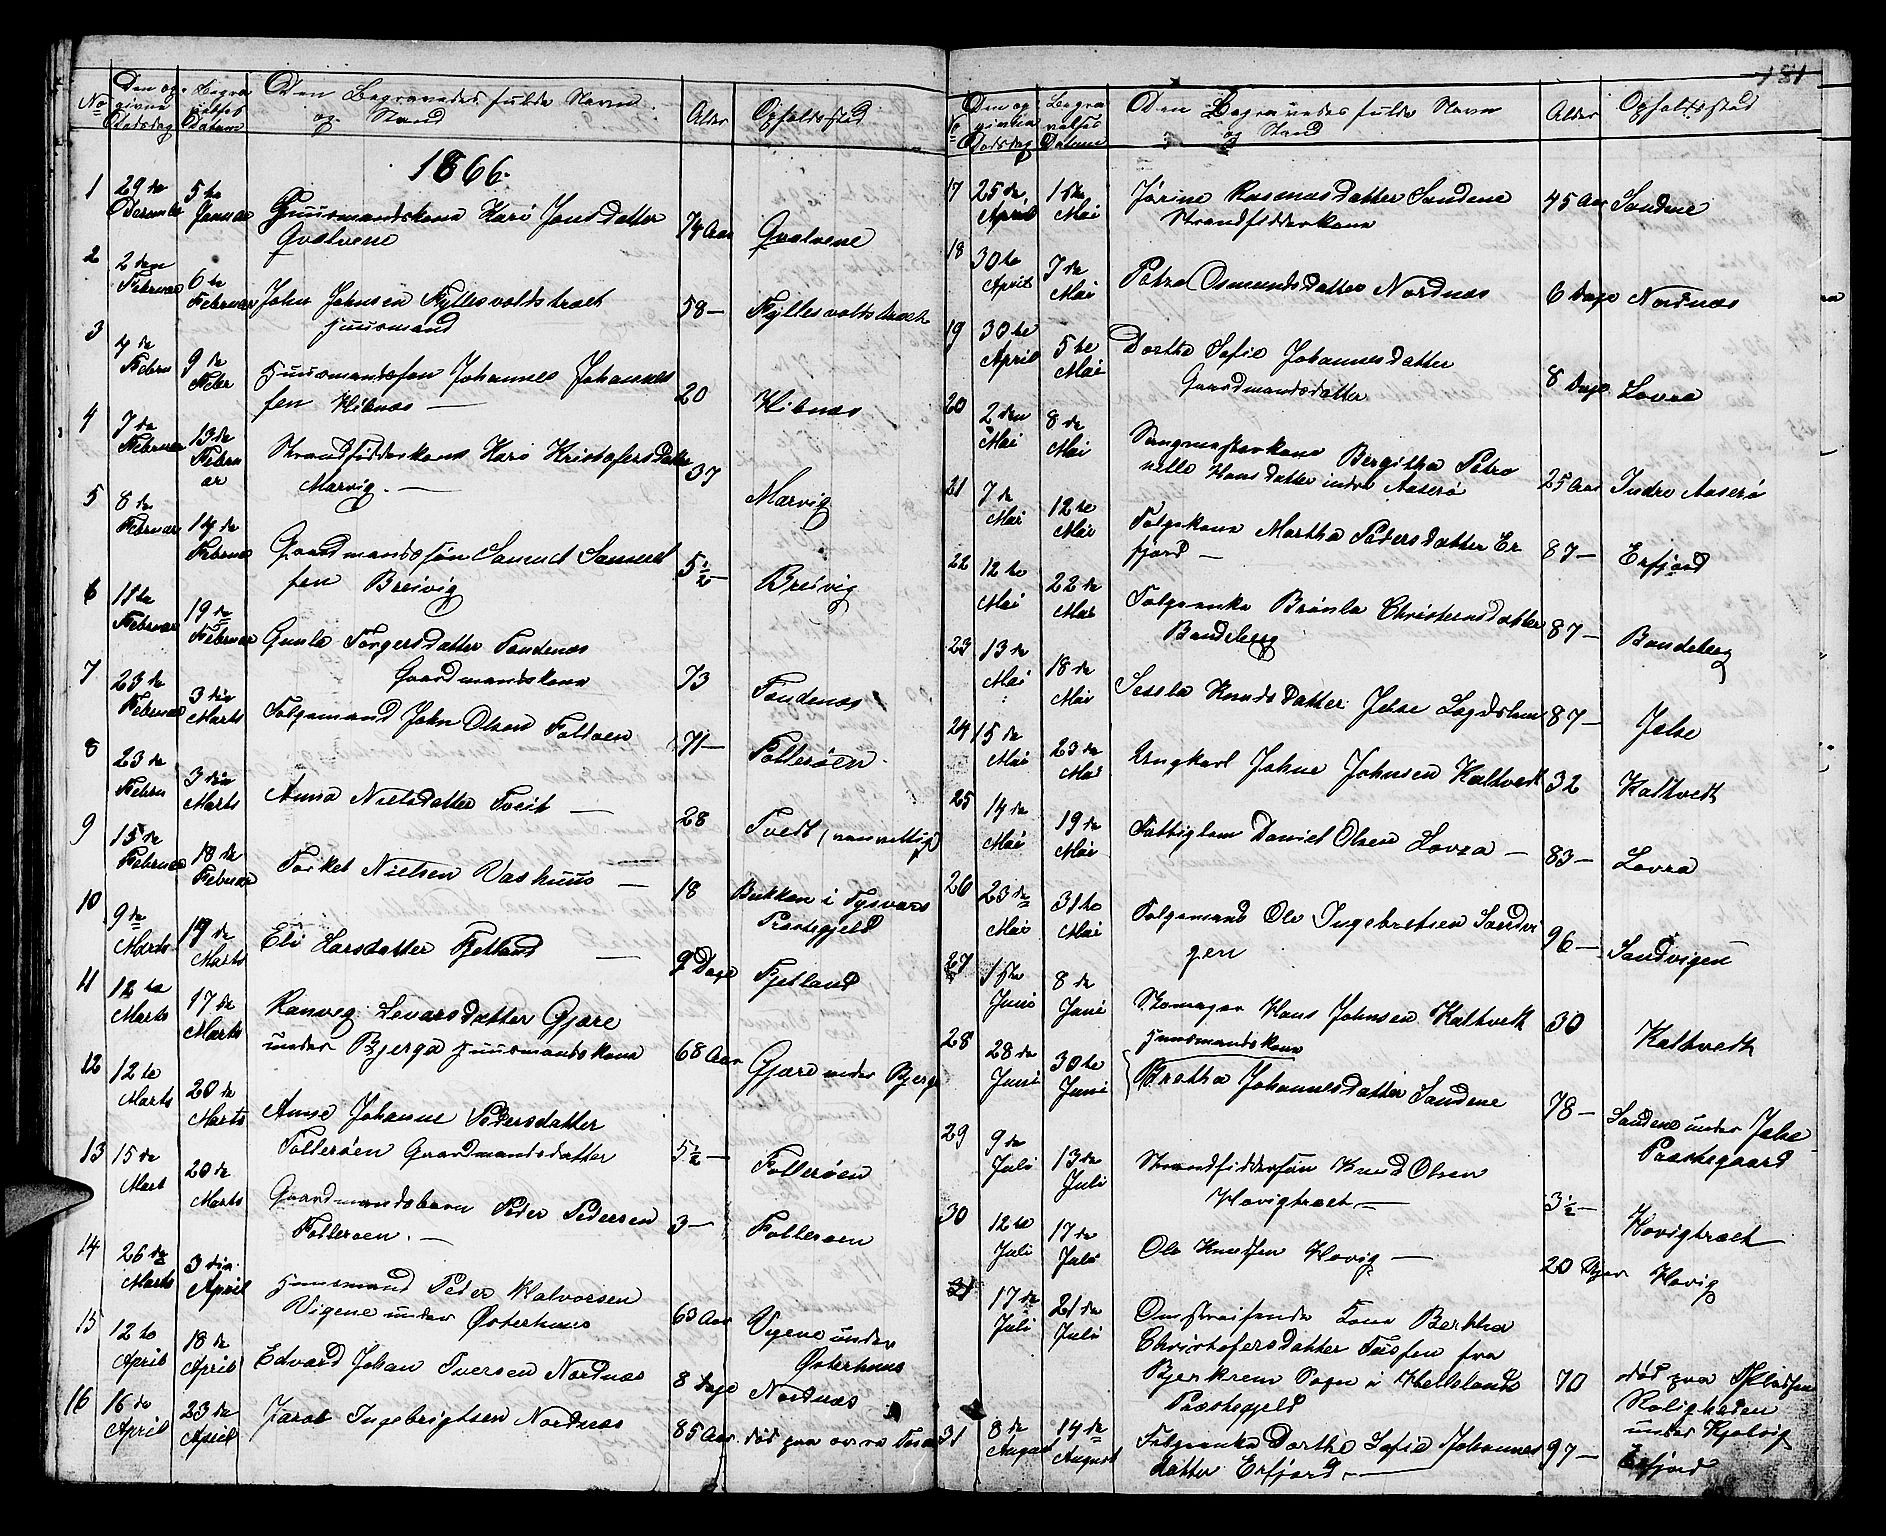 No
Den og-
givne
Dødsdag
Begra
velses
Datum
Den Begravedes fulde Navn
og Stand
Alder
Opholdssted
1866.
1
29de
December
5te
Januar
Huusmandskone Kari Jonsdatter
Qvalvene
74 Aar
Qvalvene
2
2den
Februar
6te
Februar
John Johnsen Fyllesvoldstræet
Huusmand
58 —
Fyllesvoldstræet
3
4de
Febru
9de
Feber
Huusmandssøn Johannes Johannes
sen Hibnæs —
20
Hibnæs
4
7de
Februar
13de
Febru
ar
Strandsidderkone Kari Kristofersdatter
Marvig. —
37
Marvig
5
8de
Februar
14de
Februar
Gaardmandssøn Samuel Samuel
sen Breivig
5½ —
Breivig
6
11te
Februar
19de
Februar
Gunla Torgersdatter Tandenæs
Gaardmandskone
73
Tandenæs
7
23de
Februar
3die
Marts
Folgemand John Olsen Foltøen
71 —
Follerøen
8
23de
Febru
3die
Marts
Anna Nielsdatter Tveit —
28
Tvedt (vanvittig)
9
15de
Februar
18de
Februar
Torkel Nielsen Vashuus —
18
Bukken i Tysvars
Præstegjeld
10
9de
Marts
19de
Marts
Eli Larsdatter Fjetland —
9 Dage
Fjetland
11
12te
Marts
17de
Marts
Ranveg Levarsdatter Gjære
under Bjerga Huusmandskone
68 Aar
Gjære under Bjerge
12
12te
Marts
20de
Marts
Anne Johanne Pedersdatter
Follerøen Gaardmandsdatter
5½ —
Follerøen
13
15de
Mart
20de
Marts
Gaardmandsbarn Peder Pedersen
Follerøen. —
3 —
Follerøen
14
26de
Marts
3die
April
Huusmand Peder Halvorsen
Vigene under Østerhuus
63 Aar
Vigene under
Østerhuus
15
12te
April
18de
April
Edvard Johan Iversen Nordnæs
8 Dage
Nordnæs
16
16de
April
23de
April
Jacob Ingebrigtsen Nordnæs
85 Aar
død paa
181
No
Den og
givne
Dødsdag
Begra
velses
Datum
Den Begravedes fulde Navn
og Stand
Alder
Opholdssted
17
25de
April
1ste
Mai
Jørine Rasmusdatter Sandene
Strandsidderkone
45 Aar
Sandene
18
30te
April
7de
Mai
Petra Osmundsdatter Nordnæs
6 Dage
Nordnæs
19
30te
April
5te
Mai
Dorthe Sofie Johannesdatter
Gaardmandsdatter
8 Dage
Lovra
20
2den
Mai
8de
Mai
Bergitha Petro
nille Hansdatter indre Aaserø
25 Aar
Indre Aaserø
21
7de
Mai
12te
Mai
Folgekone Martha Pedersdatter Er
fjord —
87 —
Erfjord
22
12te
Mai
22de
Mai
Folgeenke Brønla Christensdatter
Bandeberg
87 —
Bandeberg
23
13de
Mai
18de
Mai
Sessla Knudsdatter Jelse Lægdslem
87 —
Jelse
24
15de
Mai
23de
Mai
Ungkarl Johne Johnsen Kaltvedt
32
Kaltvedt
25
14de
Mai
19de
Mai
Fattiglem Daniel Olsen Lovra —
83 —
Lovra
26
23de
Mai
31te
Mai
Folgemand Ole Ingebretsen Sandvi
gen
96 —
Sandvigen
27
1ste
Juni
8de
Juni
Skomager Hans Johnsen Kaltvedt
30
Kaltvedt
28
28de
Juni
30te
Juni
Huusmandskone
Brotha Johannesdatter Sandene
78 —
Sandene under Jelse
Præstegaard
29
9de
Juli
13de
Juli
Strandsiddersøn Knud Olsen
Hovigtræet —
3½ —
Hovigtræet
30
12te
Juli
17de
Juli
Ole Knudsen Hovig —
20
Hovig
31
17de
Juli
21de
Juli
Omstreifende Kone Bertha
Christofersdatter fra
Bjerkrem Sogn i Hellelands
Præstegjeld
70
død paa
under
31
8de
August
14de
August
Folgeenke Dorthe Sofia Johannes
datter Erfjord —
97 —
Erfjord